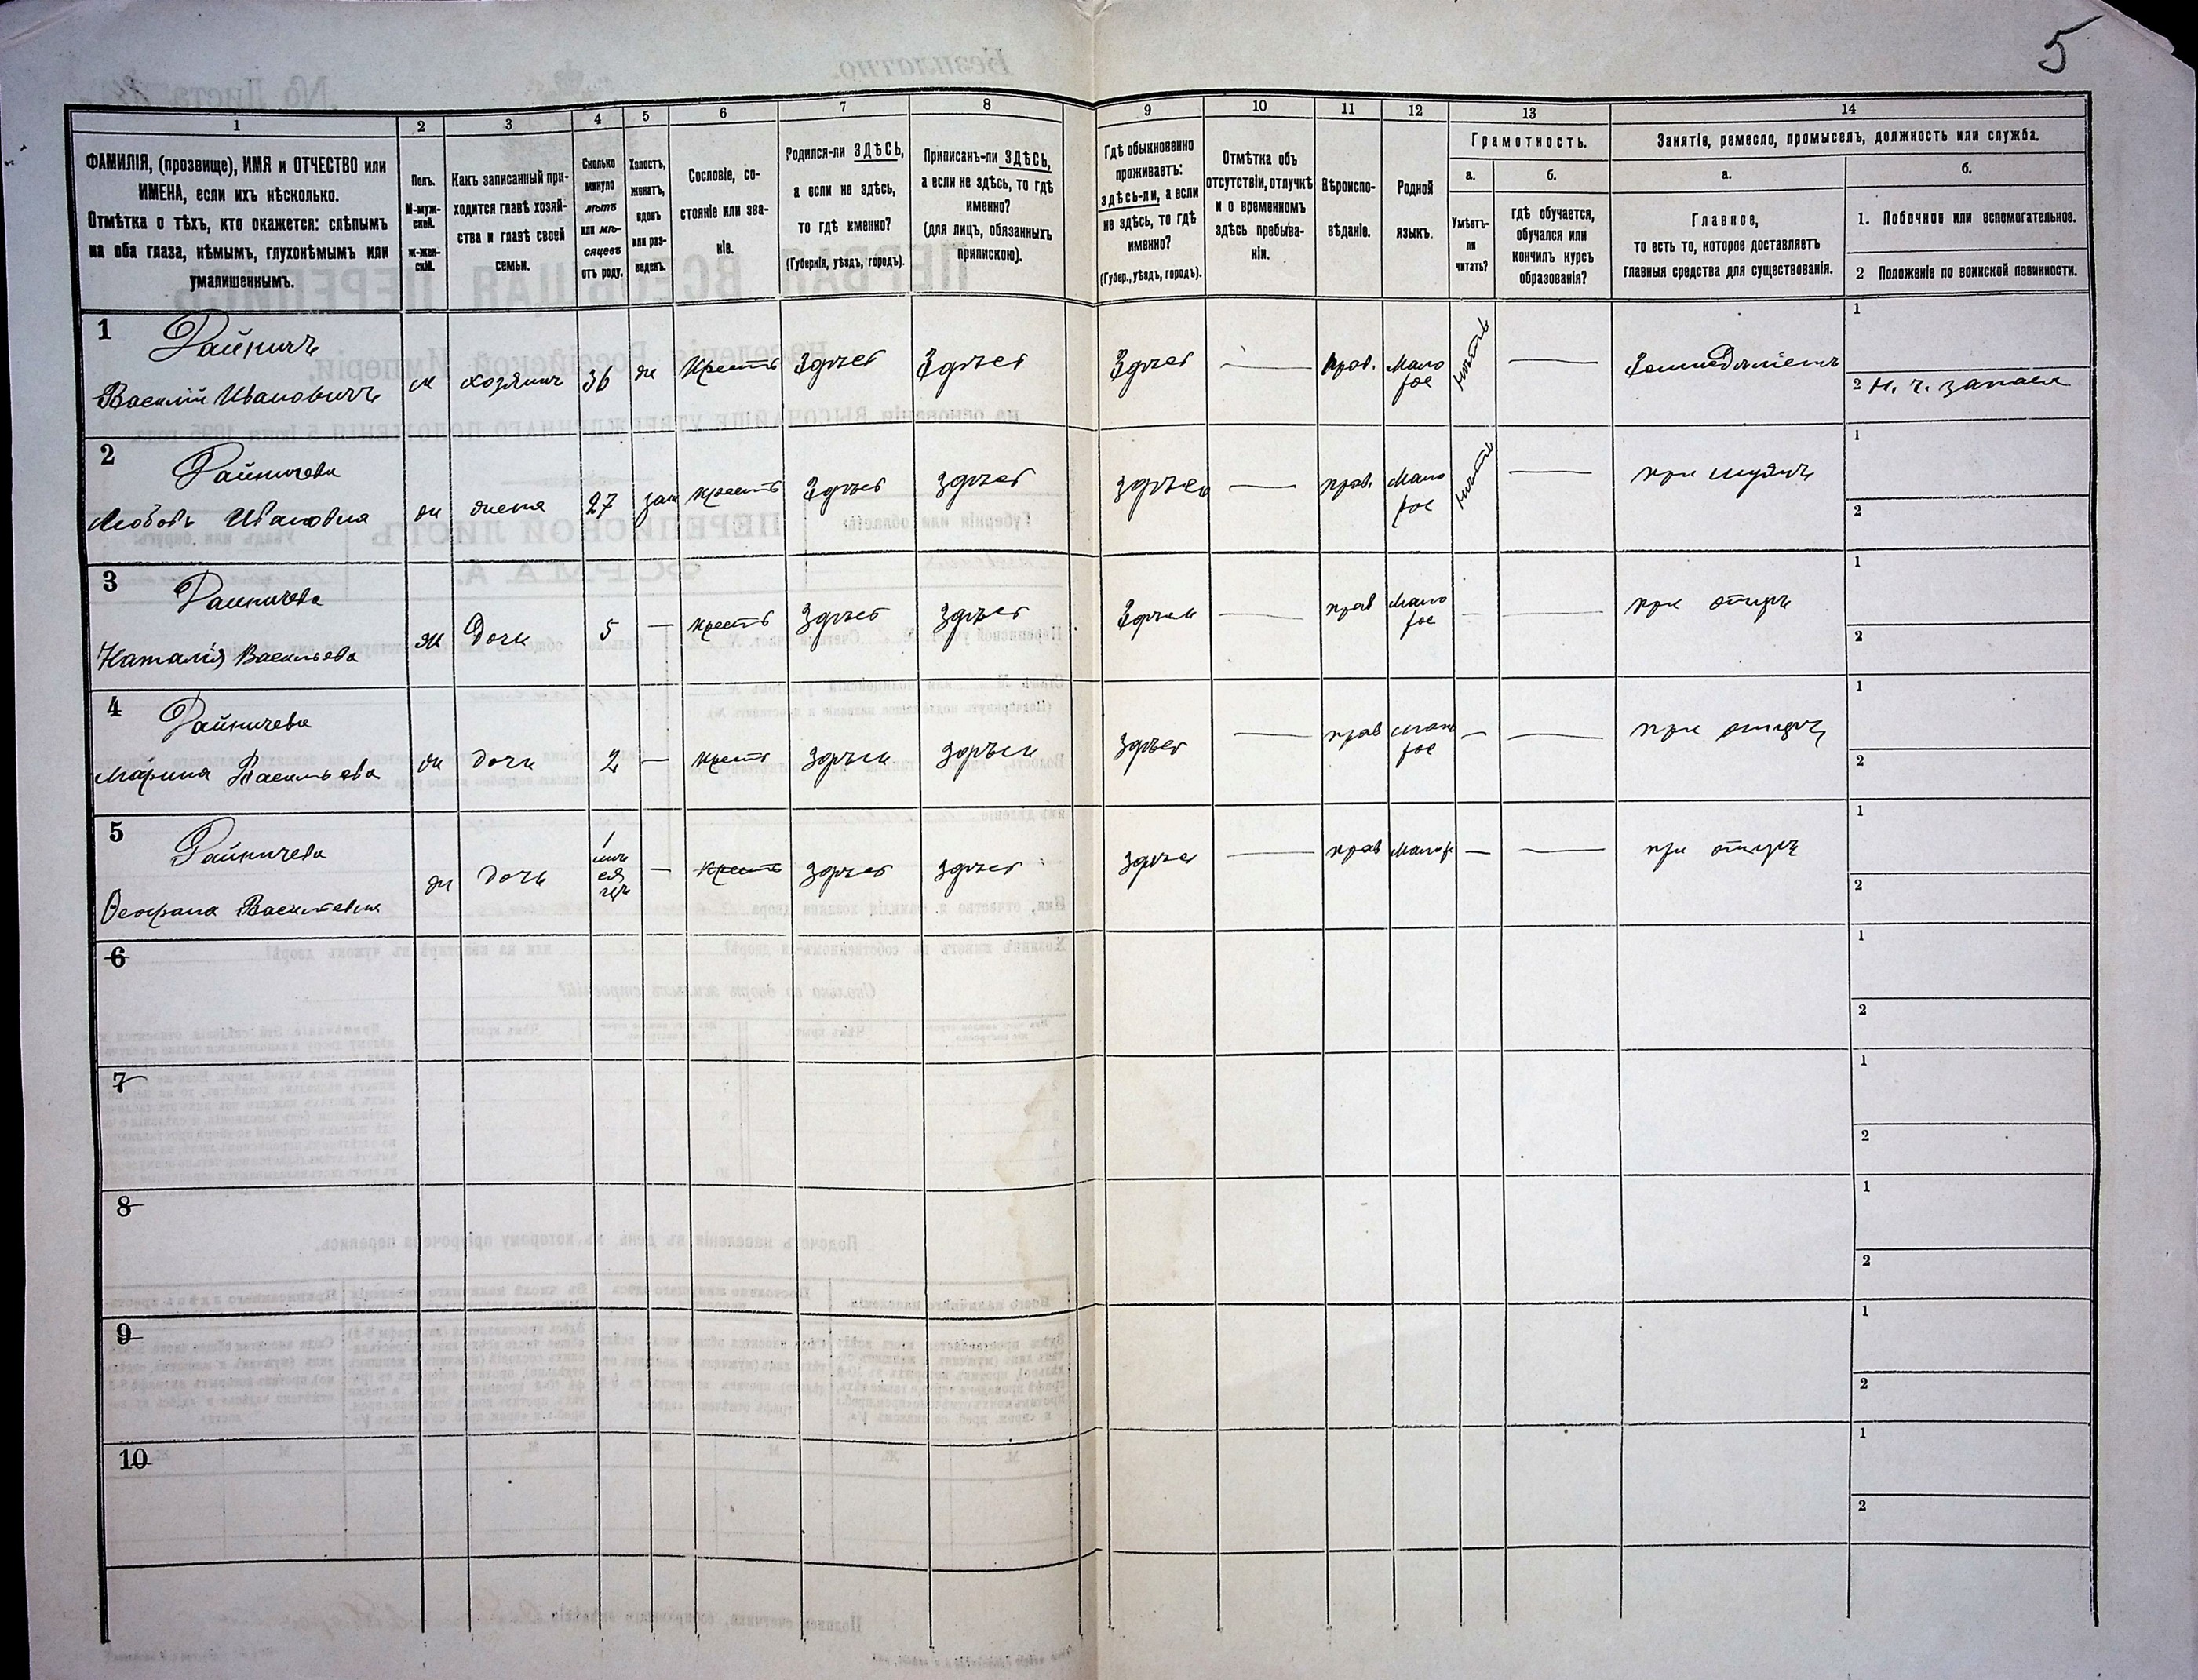 5
1
ФАМИЛІЯ, (прозвище), ИМЯ и ОТЧЕСТВО или
ИМЕНА, если ихъ нѣсколько.
Отмѣтка о тѣхъ, кто окажется: слѣпымъ
на оба глаза, нѣмымъ, глухонѣмымъ или
умалишеннымъ.
2
Полъ.
М-муж-
ской.
ж-жен-
скій.
3
Какъ записанный при-
ходится главѣ хозяй-
ства и главѣ своей
семьи.
4
Сколько
минуло
лѣтъ
или мѣ-
сяцевъ
отъ роду.
5
Холостъ,
женатъ,
вдовъ
или раз-
веденъ.
6
Сословіе, со-
стояніе или зва-
ніе.
7
Родился-ли ЗДѢСЬ,
а если не здѣсь,
то гдѣ именно?
(Губернія, уѣздъ, городъ).
8
Приписанъ-ли ЗДѢСЬ,
а если не здѣсь, то гдѣ
именно?
(для лицъ, обязанныхъ
припискою).
9
Гдѣ обыкновенно
проживаетъ:
здѣсь-ли, а если
не здѣсь, то гдѣ
именно?
(Губер., уѣздъ, городъ).
10
Отмѣтка объ
отсутствіи, отлучкѣ
и о временномъ
здѣсь пребыва-
ніи.
11
Вѣроиспо-
вѣданіе.
12
Родной
языкъ.
13
Грамотность.
а.
Умѣетъ-
ли
читать?
б.
гдѣ обучается,
обучался или
кончилъ курсъ
образованія?
14
Занятіе, ремесло, промыселъ, должность или служба.
а.
Главное,
то есть то, которое доставляетъ
главныя средства для существованія.
б.
1. Побочное или вспомогательное.
2 Положеніе по воинской повинности.
1
Василій Ивановичъ
м хозяинъ 36 ж Крест Здѣсь Здѣсь Здѣсь — прав. Мало
рос нѣтъ — Земледѣліемъ
1
2 Н. ч. запаса
2
Любовь Ивановна
ж жена 27 зам крест Здѣсь здѣсь здѣсь — прав. Мало
рос нѣтъ — при мужѣ
1
2
3
Наталія Васильева
ж Дочь 5 — крест Здѣсь Здѣсь Здѣсь — прав Мало
рос — — при отцѣ
1
2
4
Марина Васильева
ж дочь 2 — крест здѣсь здѣсь здѣсь — прав мало
рос — — при отцѣ
1
2
5
Васильевна
ж дочь 1
мѣ
ся
цъ — крест здѣсь здѣсь здѣсь — прав Малор — — при отцѣ
1
2
6
1
2
7
1
2
8
1
2
9
1
2
10
1
2